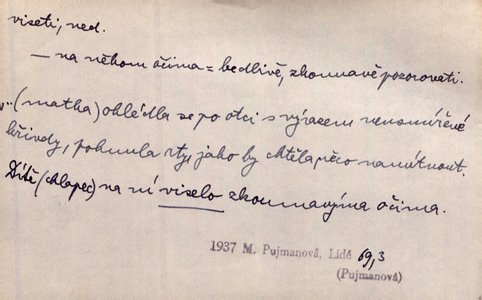 viseti, ned.
— na někom očima = bedlivě, zkoumavě pozorovati.
„..(matka) ohlédla se po otci s výrazem nesmírné
křivdy, pohnula rty, jako by chtěla něco namítnout.
Dítě (chlapec) na ní viselo zkoumavýma očima.
1937 M. Pujmanová, Lidé 69,3
(Pujmanová)